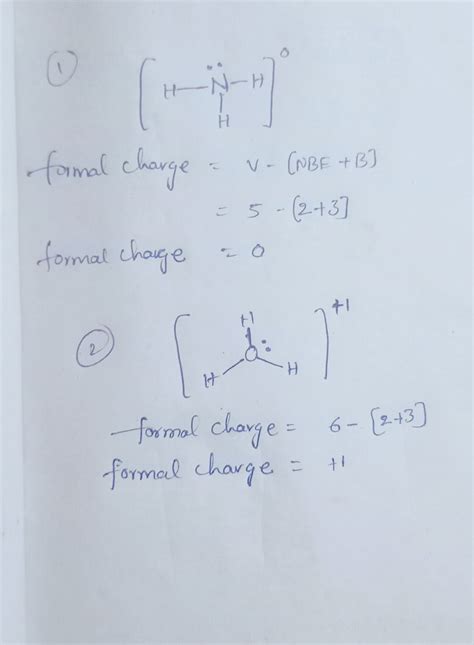 1
[H-N-H]0
H
formal charge = V - [NBE + B]
= 5 - [2+3]
formal charge = 0
2
H +1
[O:]
H H
formal charge = 6 - [2+3]
formal charge = +1